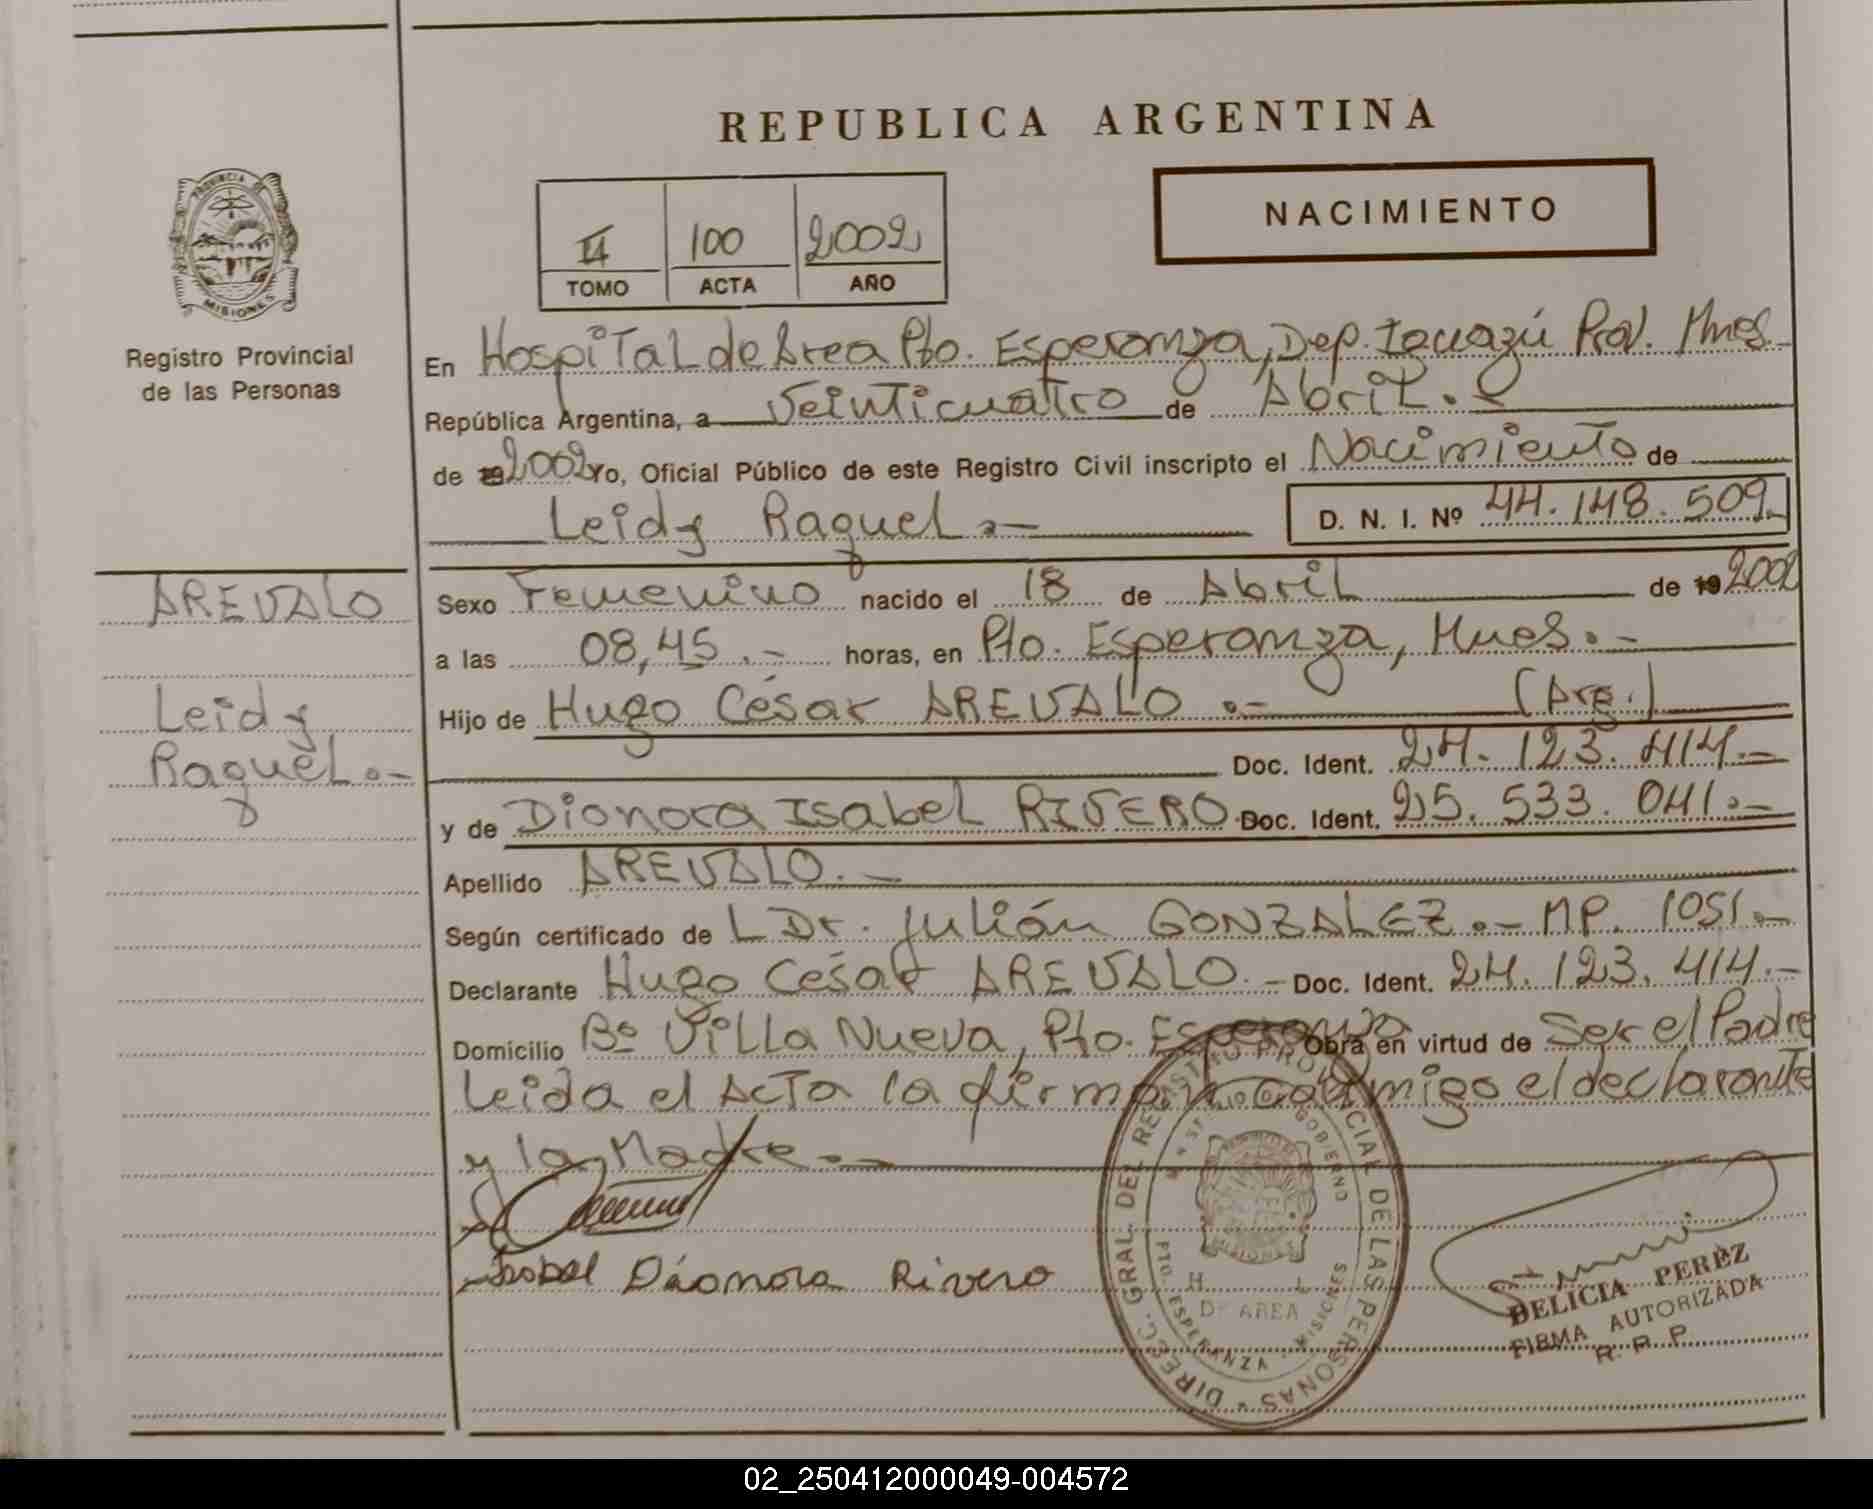 REPUBLICA ARGENTINA
NACIMIENTO
II 100 2002
TOMO ACTA AÑO
PROVINCIA DE
MISIONES
Registro Provincial
de las Personas
AREVALO
Leidy
Raquel.-
En Hospital de Area Pto. Esperanza, Dep. Iguazú Prov. Mnes.-
República Argentina, a veinticuatro de Abril.-
de 19 2002 Yo, Oficial Público de este Registro Civil inscripto el Nacimiento de
Leidy Raquel.- D. N. I. Nº 44.148.509.-
Sexo Femenino nacido el 18 de Abril de 19 2002
a las 08,45.- horas, en Pto. Esperanza, Mnes.-
Hijo de Hugo César AREVALO.- (Arg.)
Doc. Ident. 24.123.414.-
y de Dionora Isabel RIVERO Doc. Ident. 25.533.041.-
Apellido AREVALO.-
Según certificado de L Dr. Julián GONZALEZ.- MP. 1051.-
Declarante Hugo César AREVALO.- Doc. Ident. 24.123.414.-
Domicilio Bº Villa Nueva, Pto. Esperanza Obra en virtud de Ser el Padre
Leida el Acta la firman conmigo el declarante
y la Madre.-
Isabel Dionora Rivero
DIREC. GRAL. DEL REGISTRO PROVINCIAL DE LAS PERSONAS
GOBIERNO
H L
D AREA
PTO. ESPERANZA - MISIONES
DELICIA PEREZ
FIRMA AUTORIZADA
R. P. P.
02_250412000049-004572